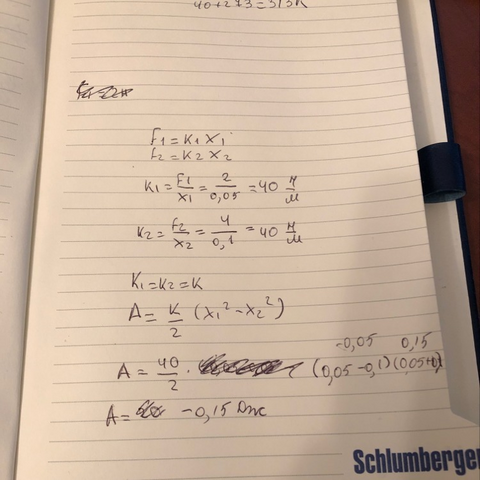 40+273=313K
F1=K1X1
F2=K2X2
K1=F1/X1=2/0,05=40 Н/М
K2=F2/X2=4/0,1=40 Н/М
K1=K2=K
A=K/2 (X1²-X2²)
-0,05 0,15
A=40/2 · (0,05-0,1)(0,05+0,
A= -0,15 Дж
Schlumberger